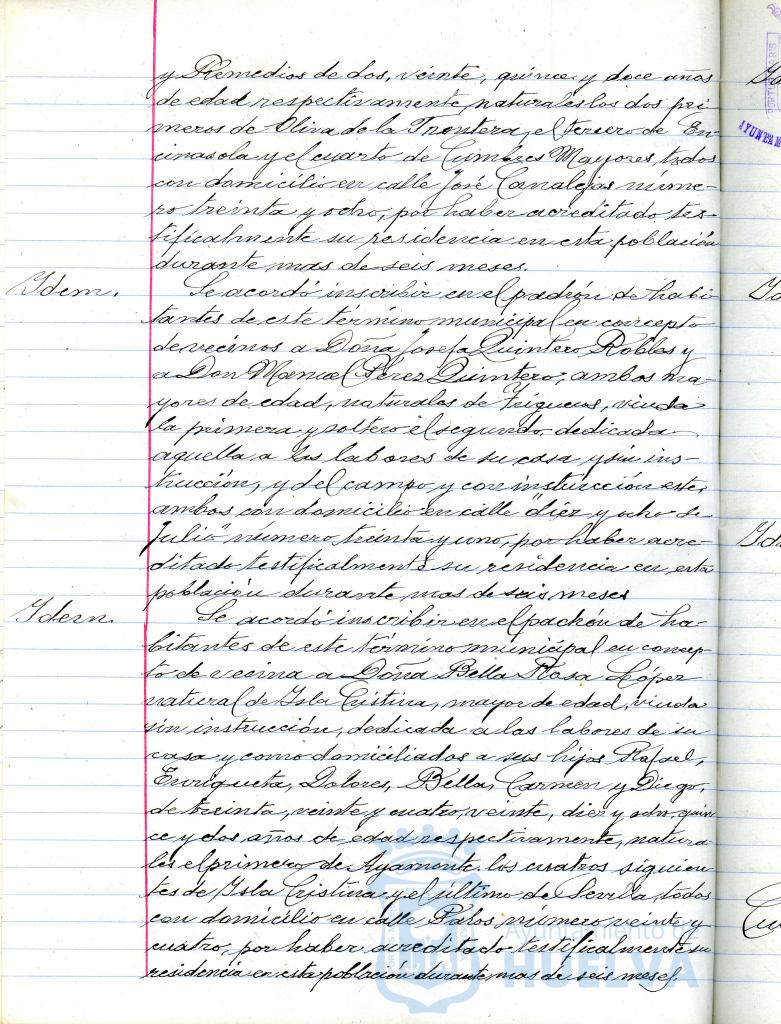 y Remedios de dos, veinte, quince y doce años
de edad respectivamente, naturales los dos pri
meros de Oliva de la Frontera, el tercero de En-
cinasola y el cuarto de Cumbres Mayores, todos
con domicilio en calle José Canalejas núme-
ro treinta y ocho, por haber acreditado tes-
tificalmente su residencia en esta población
durante mas de seis meses.
Idem.
Se acordó inscribir en el padrón de habi
tantes de este término municipal en concepto
de vecinos a Doña Josefa Quintero Robles y
a Don Manuel Pérez Quintero, ambos ma
yores de edad, naturales de Trigueros, viuda
la primera y soltero el segundo, dedicada
aquella a las labores de su casa y sin ins-
trucción, y del campo y con instrucción este,
ambos con domicilio en calle "diez y ocho de
Julio" número treinta y uno, por haber acre-
ditado testificalmente su residencia en esta
población durante mas de seis meses
Idem.
Se acordó inscribir en el padrón de ha-
bitantes de este término municipal en concep
to de vecina a Doña Bella Rosa López
natural de Isla Cristina, mayor de edad, viuda
sin instrucción, dedicada a las labores de su
casa y como domiciliados a sus hijos Rafael,
Enriqueta, Dolores, Bella, Carmen y Diego,
de treinta, veinte y cuatro, veinte, diez y ocho, quin
ce y dos años de edad respectivamente, natura
les el primero de Ayamonte los cuatros siguien
tes de Isla Cristina y el último de Sevilla, todos
con domicilio en calle Palos número veinte y
cuatro, por haber acreditado testificalmente su
residencia en esta población durante mas de seis meses.
Ayuntamiento de
HUELVA